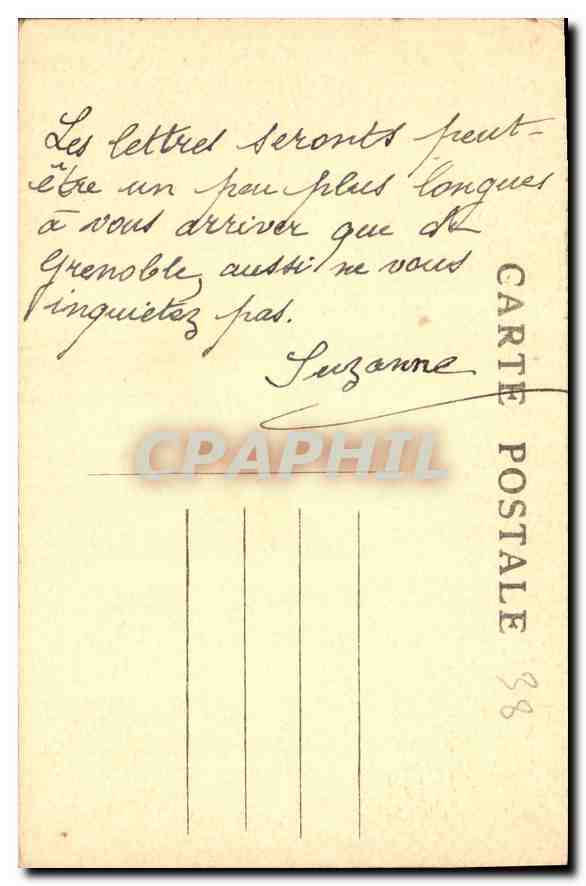 Les lettres seronts peut-
être un peu plus longues
à vous arriver que de
Grenoble, aussi ne vous
inquietez pas.
Suzanne
CARTE POSTALE
CPAPHIL
38